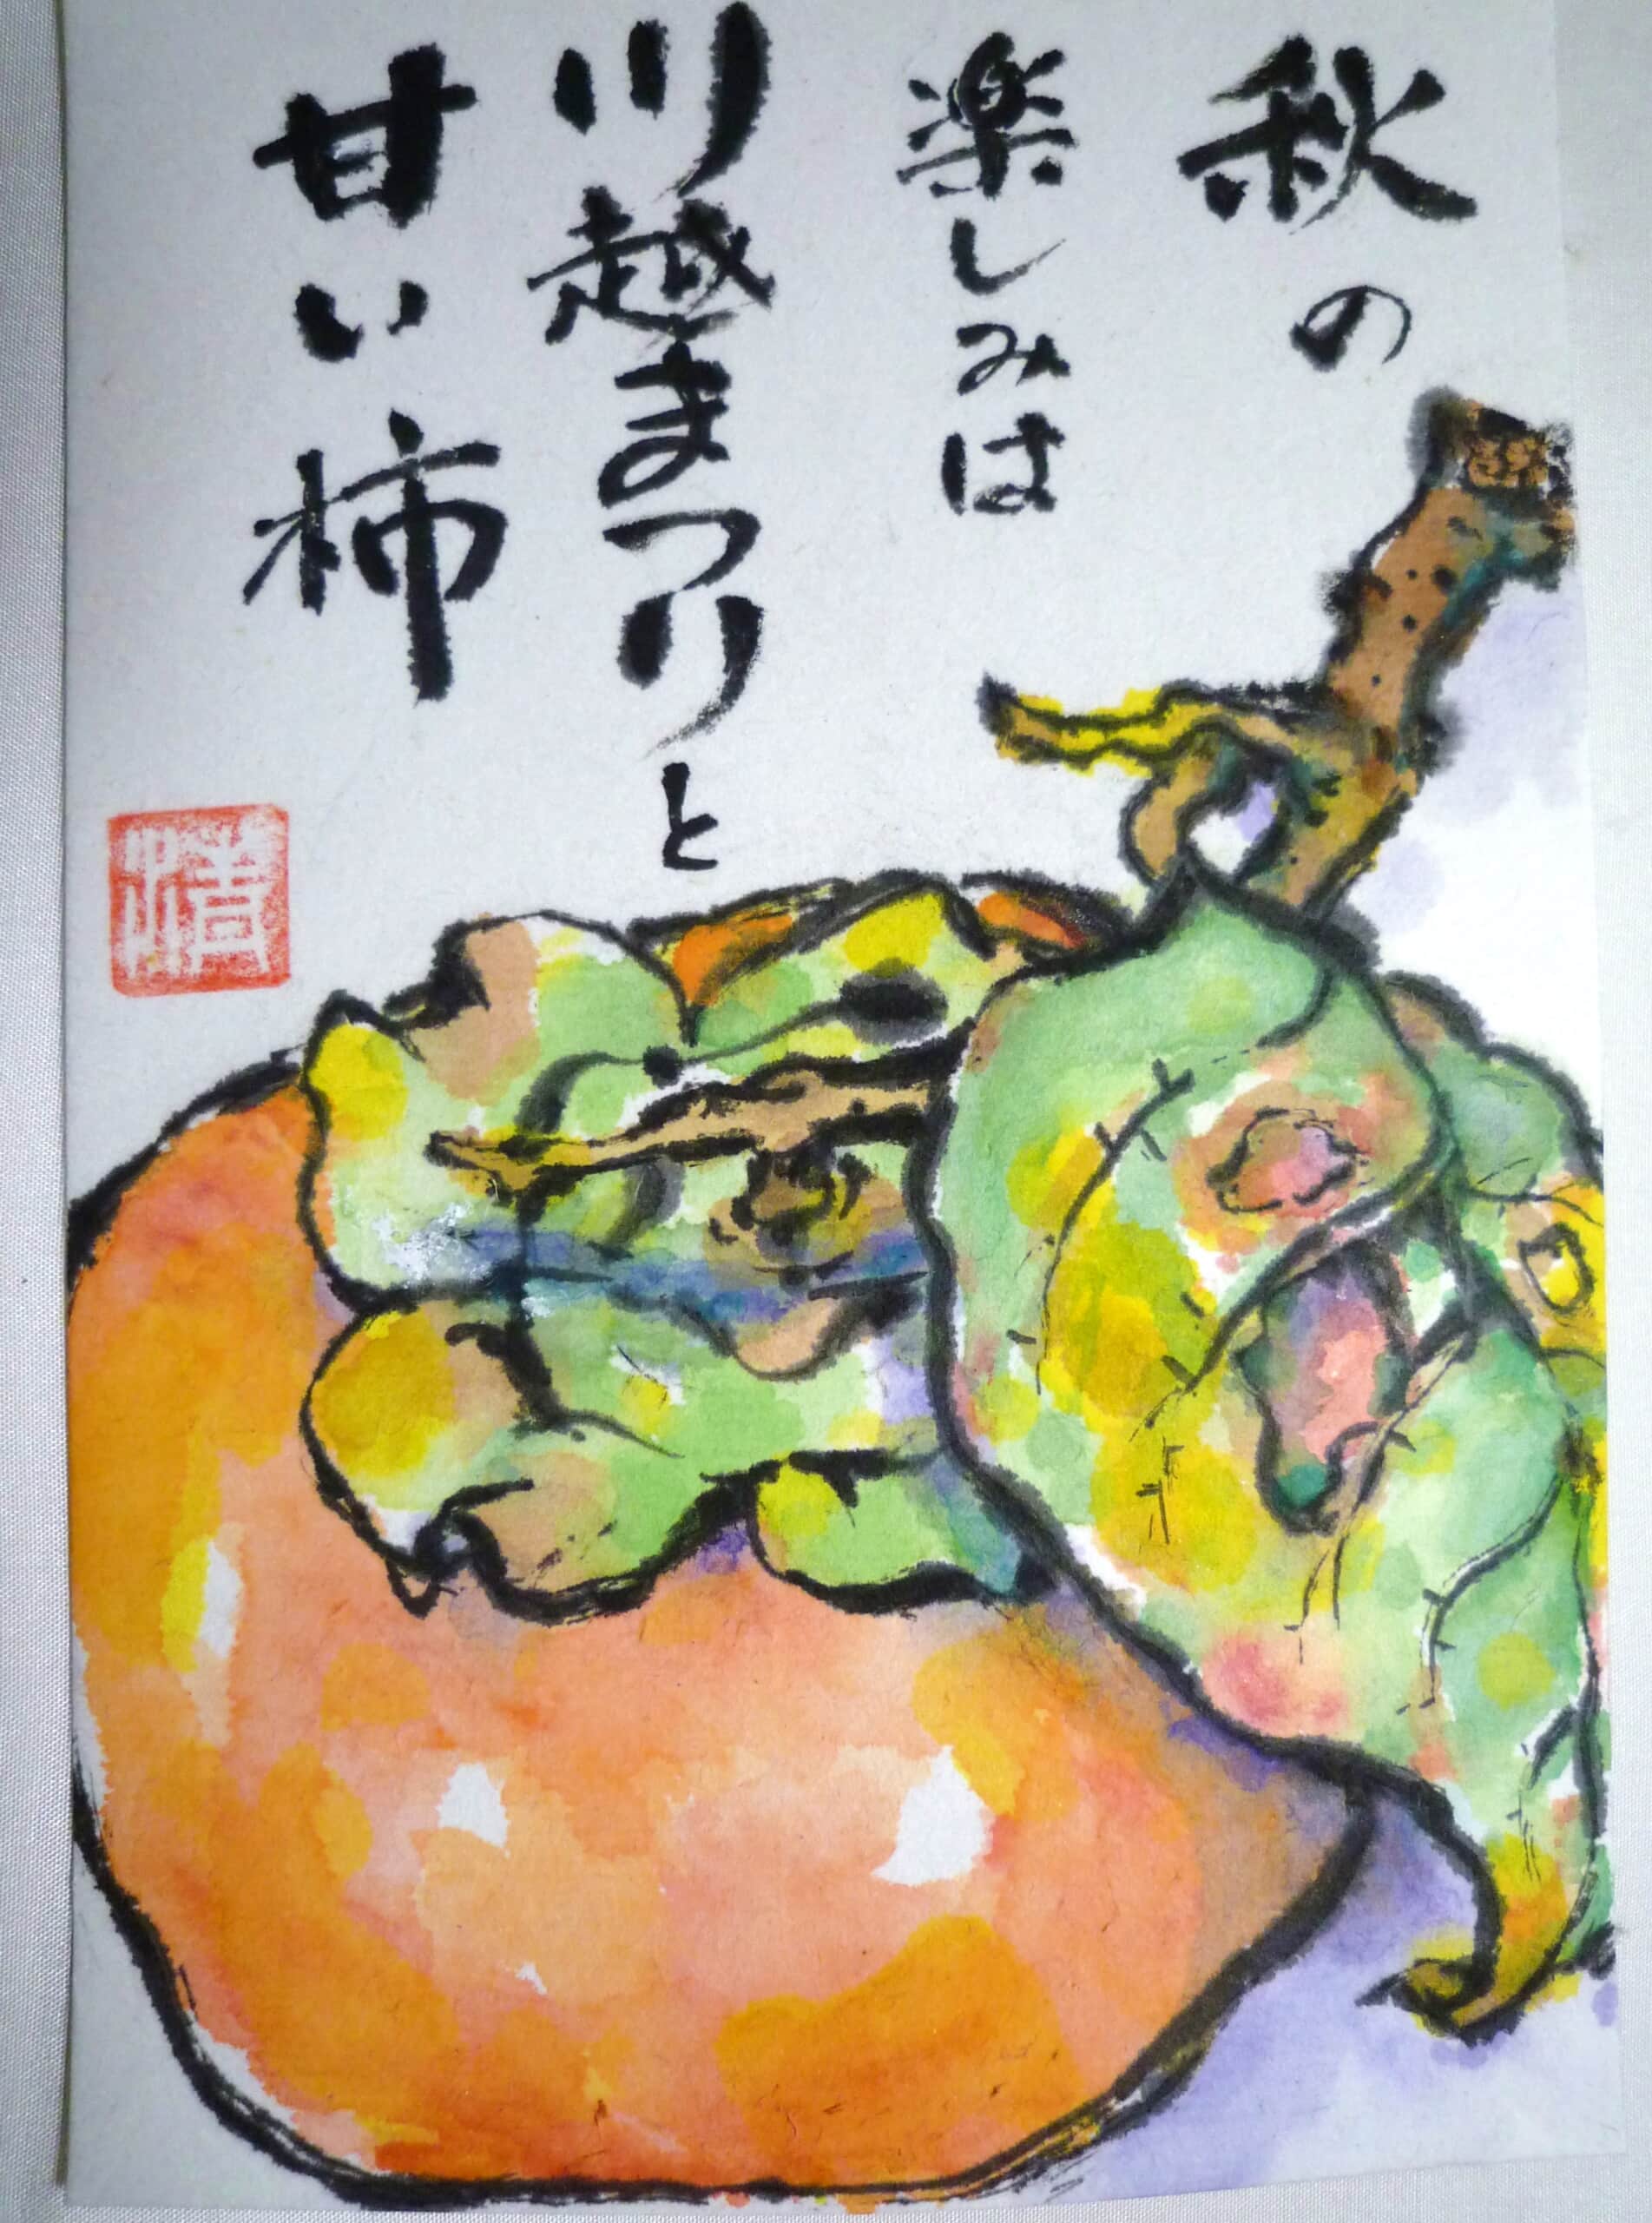 秋の
楽しみは
川越まつりと
甘い柿
清